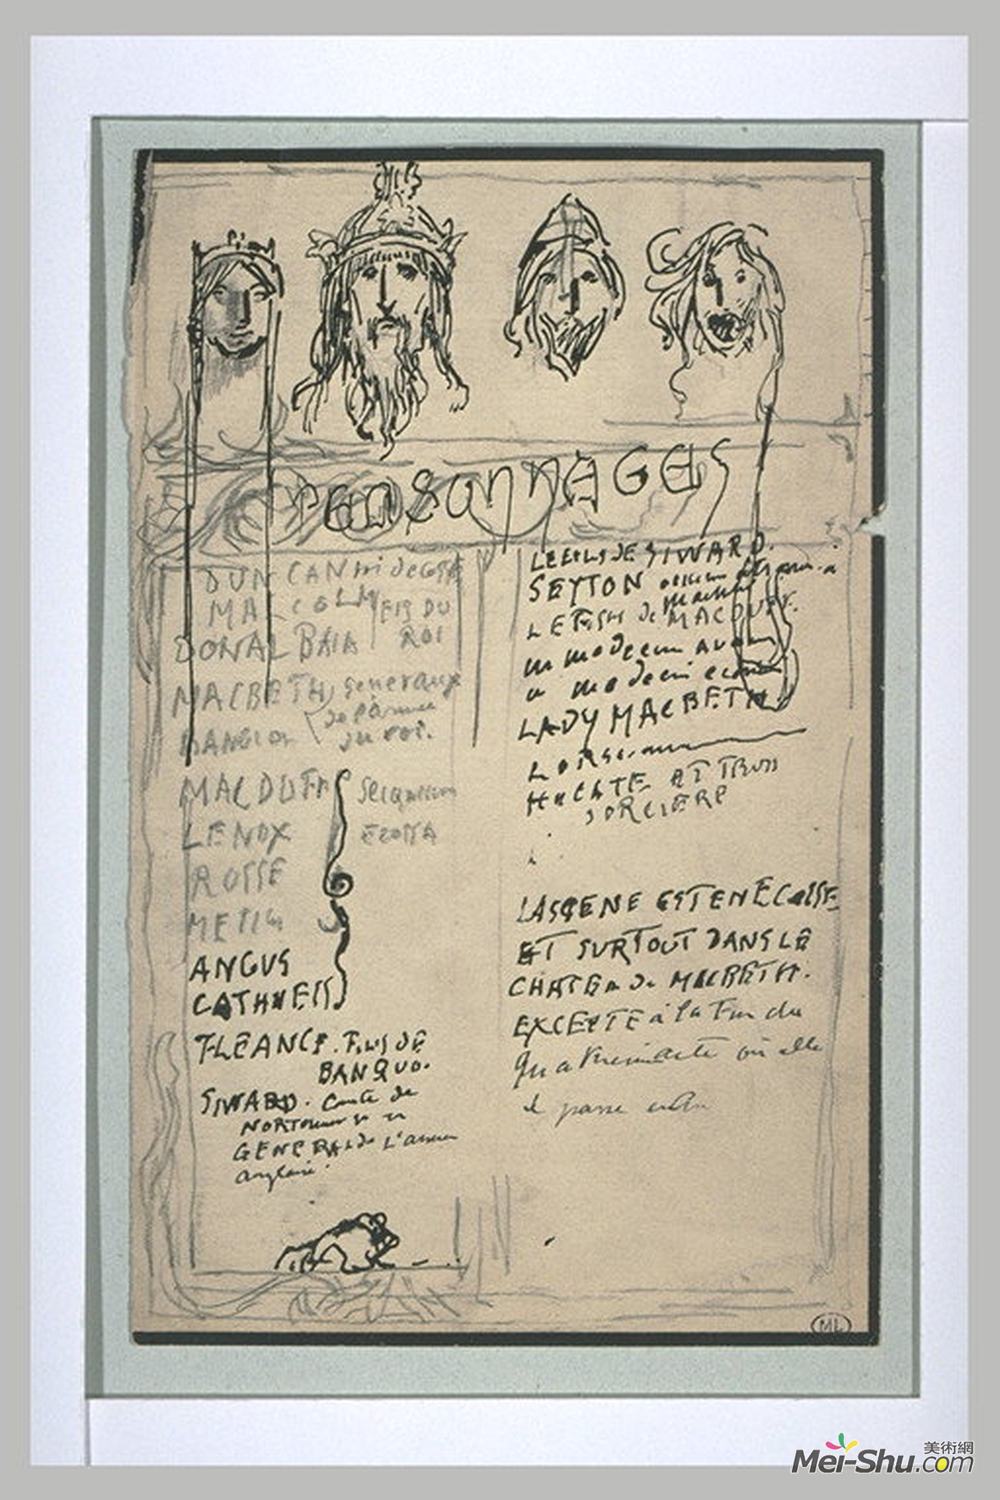 PERSONNAGES
DUNCAN roi de
MALCOLM FIS DU
DONALBAIN ROI
MACBETH generaux
de l'armée
BANQUO du roi.
MACDUFF
LENOX
ROSSE
ANGUS
CATHNESS
FLEANCE. FILS DE
BANQUO.
SIWARD. Comte de
GENERAL de L'armée
anglaise.
LE FILS DE SIWARD.
SEYTON
LE FILS de MACDUFF.
un medecin
un medecin
LADY MACBETH
HECATE ET TROIS
SORCIERE
LA SCENE EST EN ECOSSE
ET SURTOUT DANS LE
CHATEA de MACBETH.
EXCEPTE à la Fin du
où elle
se passe
ML
美術網
Mei-Shu.com